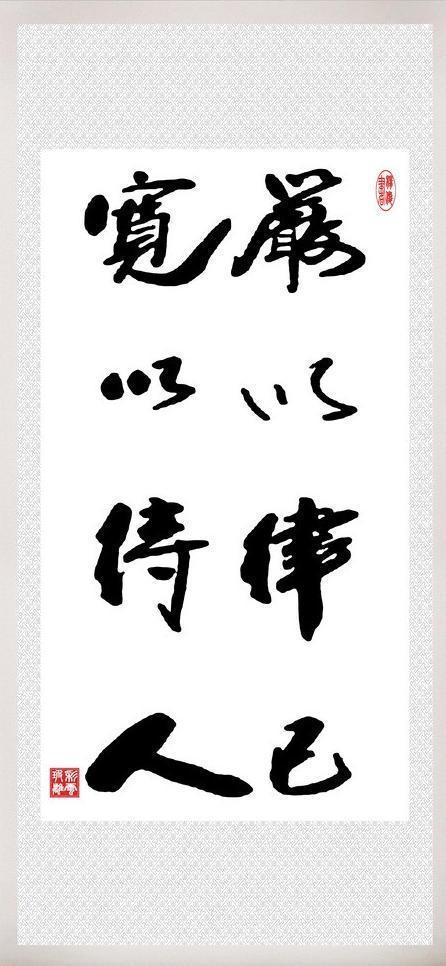 嚴以律己
寬以待人